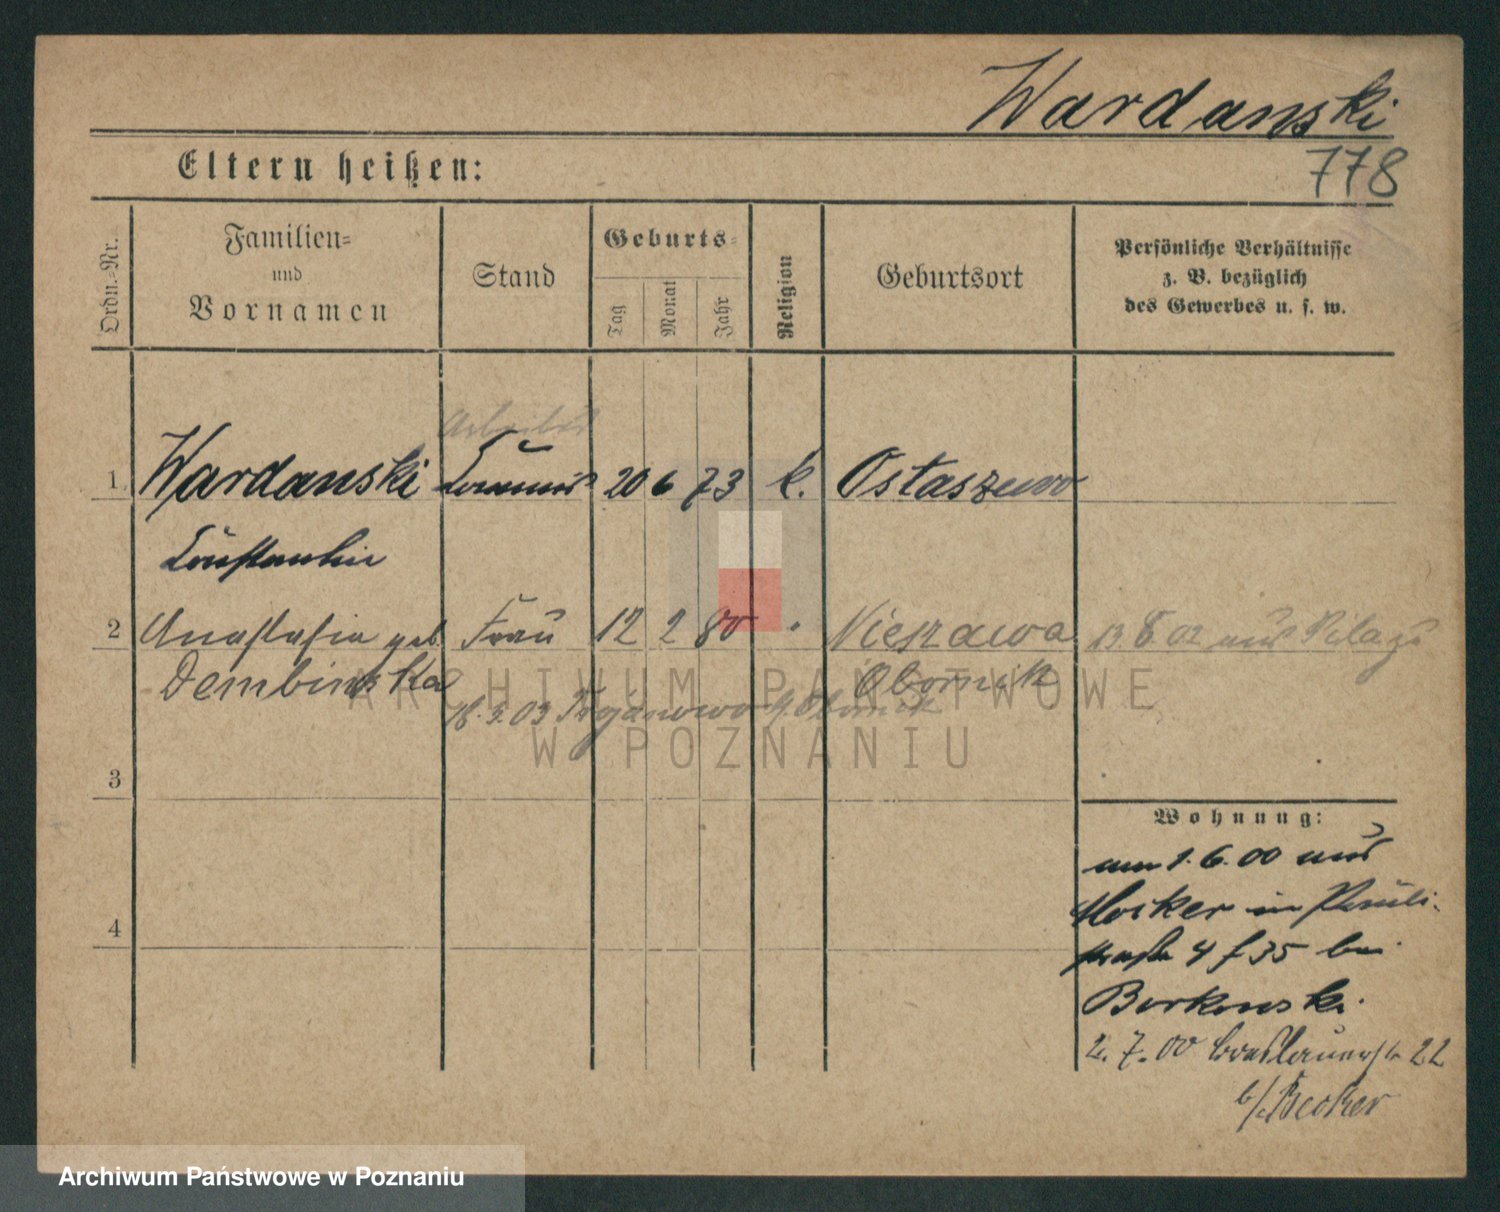 Wardanski
778
Eltern heißen:
Ordn.-Nr.
Familien-
und
Vornamen
Stand
Geburts-
Tag
Monat
Jahr
Religion
Geburtsort
Persönliche Verhältnisse
z. B. bezüglich
des Gewerbes u. s. w.
Arbeiter
1. Wardanski 20 6 73 k. Ostaszewo
Constantin
2 Anastasia geb. Frau 12 2 80 Nieszawa 13. 8 02 aus Pila
Dembinska Obornik
18. 3. 03
ARCHIWUM PAŃSTWOWE
W POZNANIU
3
Wohnung:
am 1. 6. 00 aus
Mocker in Pauli-
straße 4 f 35 bei
Borkowski.
2. 7. 00 Breslauerstr 22
b/ Becker
4
Archiwum Państwowe w Poznaniu